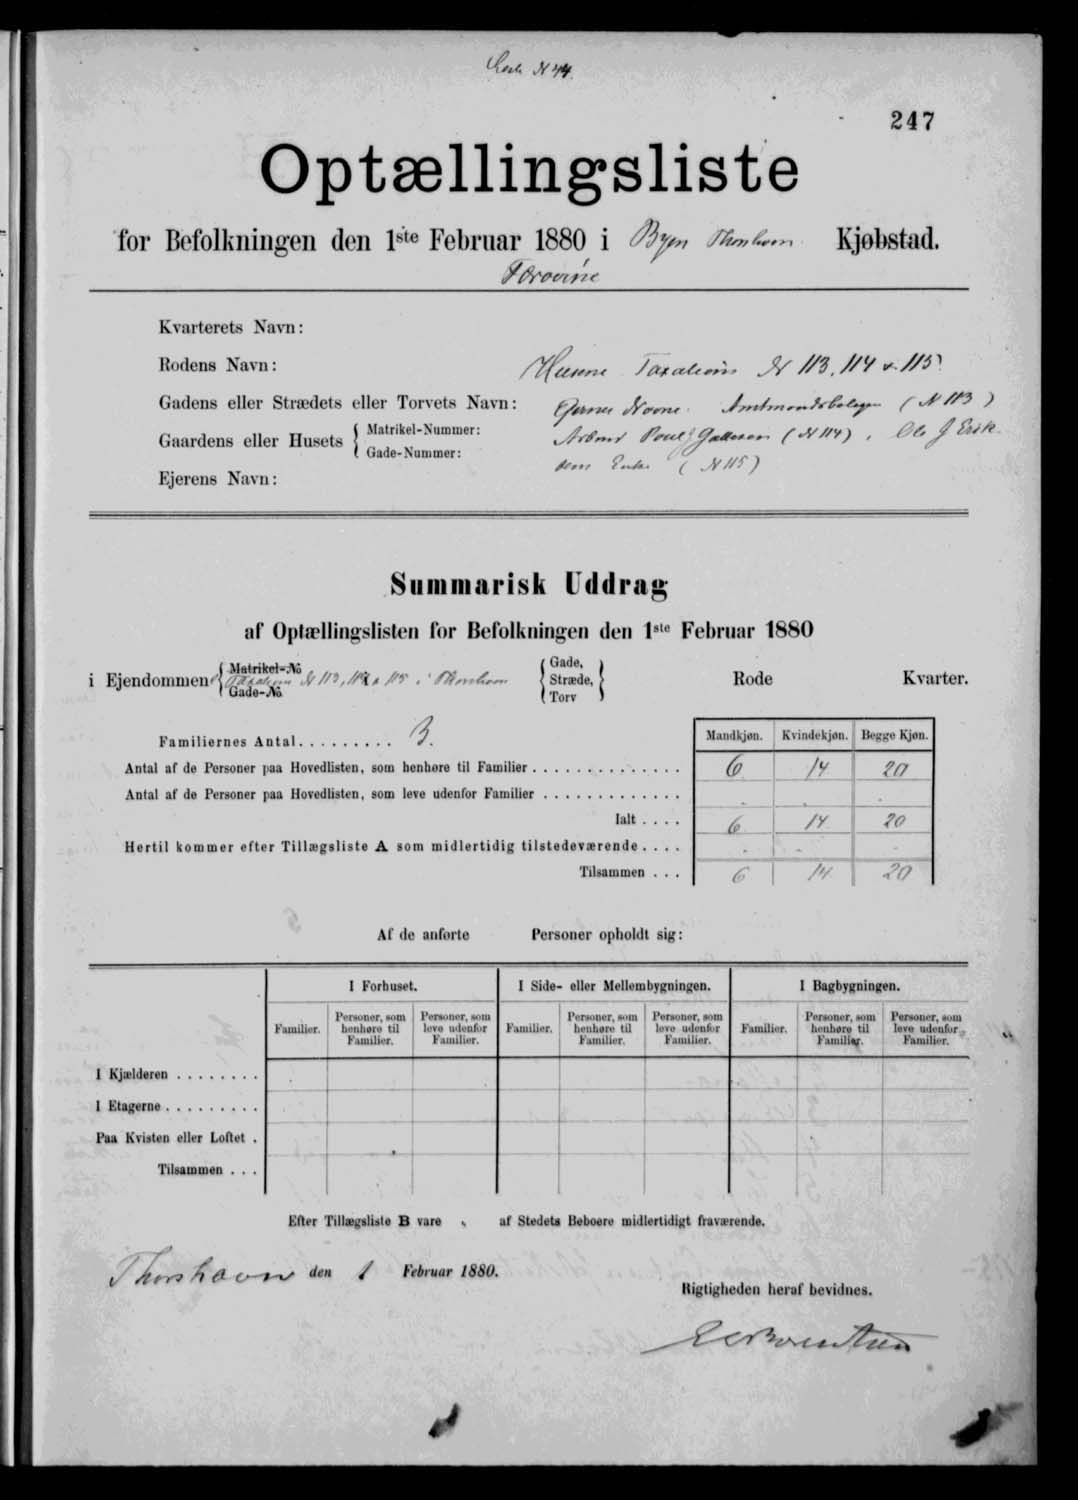 Liste N 44.
247
Optællingsliste
for Befolkningen den 1ste Februar 1880 i Byen Thorshavn Kjøbstad.
Færøerne
Kvarterets Navn:
Rodens Navn:
Husene Taxations N 113, 114 & 115
Gadens eller Strædets eller Torvets Navn:
Ejerens Navne: Amtmandsboligen (N 113)
Gaardens eller Husets { Matrikel-Nummer:
Gade-Nummer:
Poul J (N 114), Ole J
Enke (N 115)
Ejerens Navn:
Summarisk Uddrag
af Optællingslisten for Befolkningen den 1ste Februar 1880
i Ejendommene { Matrikel-No. Taxations N 113, 114 & 115 i Thorshavn Gade-No. { Gade, Stræde, Torv } Rode Kvarter.
Familiernes Antal......... 3.
Mandkjøn. Kvindekjøn. Begge Kjøn.
Antal af de Personer paa Hovedlisten, som henhøre til Familier .............. 6 14 20
Antal af de Personer paa Hovedlisten, som leve udenfor Familier ............. . . .
Ialt .... 6 14 20
Hertil kommer efter Tillægsliste A som midlertidig tilstedeværende.... . . .
Tilsammen ... 6 14 20
Af de anførte Personer opholdt sig:
I Forhuset. I Side- eller Mellembygningen. I Bagbygningen.
Familier. Personer, som henhøre til Familier. Personer, som leve udenfor Familier. Familier. Personer, som henhøre til Familier. Personer, som leve udenfor Familier. Familier. Personer, som henhøre til Familier. Personer, som leve udenfor Familier.
I Kjælderen ........
I Etagerne .........
Paa Kvisten eller Loftet .
Tilsammen ...
Efter Tillægsliste B vare af Stedets Beboere midlertidigt fraværende.
Thorshavn den 1 Februar 1880.
Rigtigheden heraf bevidnes.